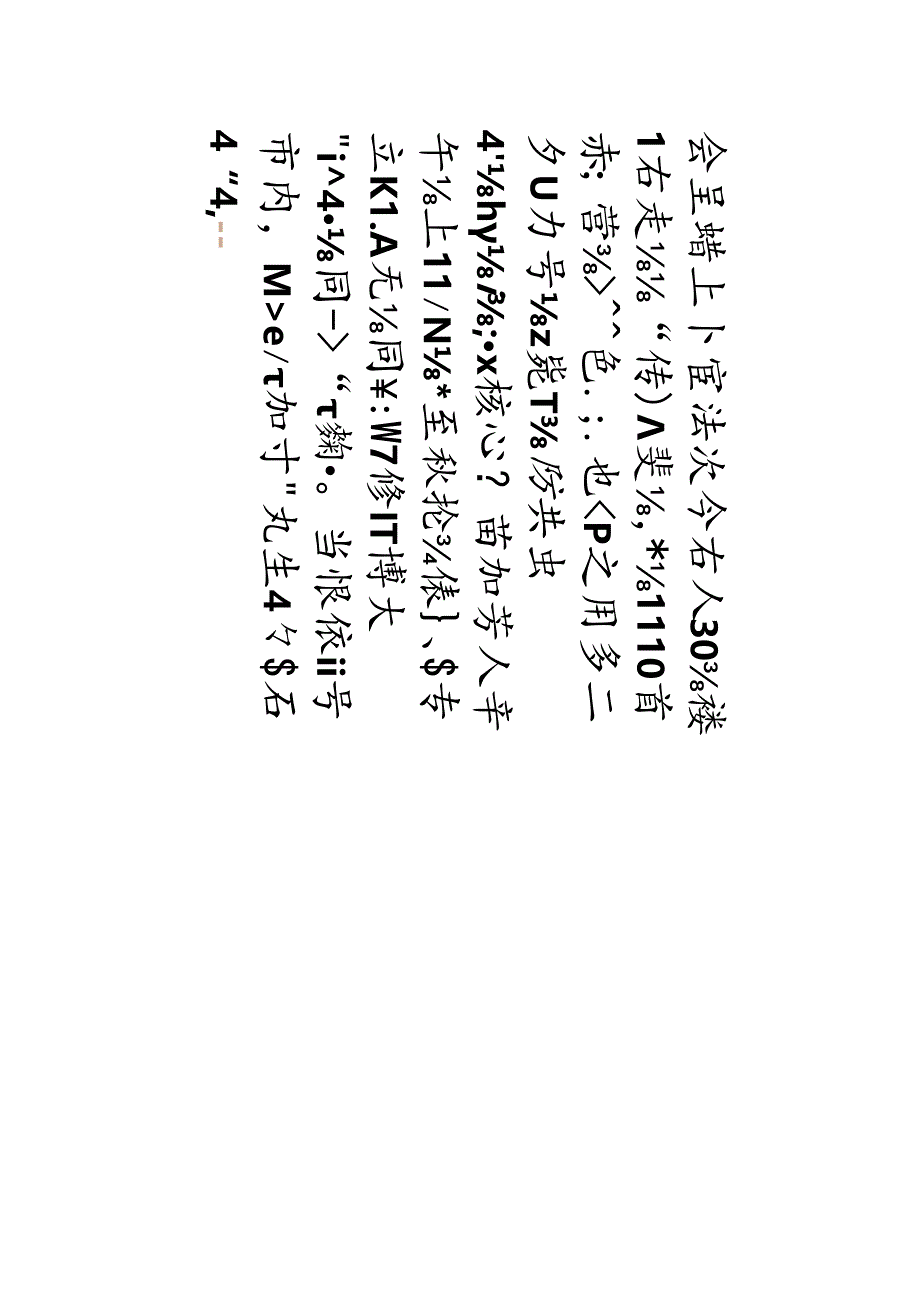 会呈蜡上卜宦法次今右人30⅜褛
1右走⅛⅛“传)Λ斐⅛,*⅛1110首
赤；营⅜〉^^色.;.也<P之用多二
夕U力号⅛z毙T⅜厉共虫
4'⅛hγ⅛i⅜;•x核心？苗加芳人辛
午⅛上11/N⅛*至秋抡¾俵}、$专
立K1.A无⅛同¥:W7修IT博大
"i^4•⅛同−〉“τ鞠•。当恨依ii号
市内，M>e/τ加寸"丸生4勺$石
4“4,--